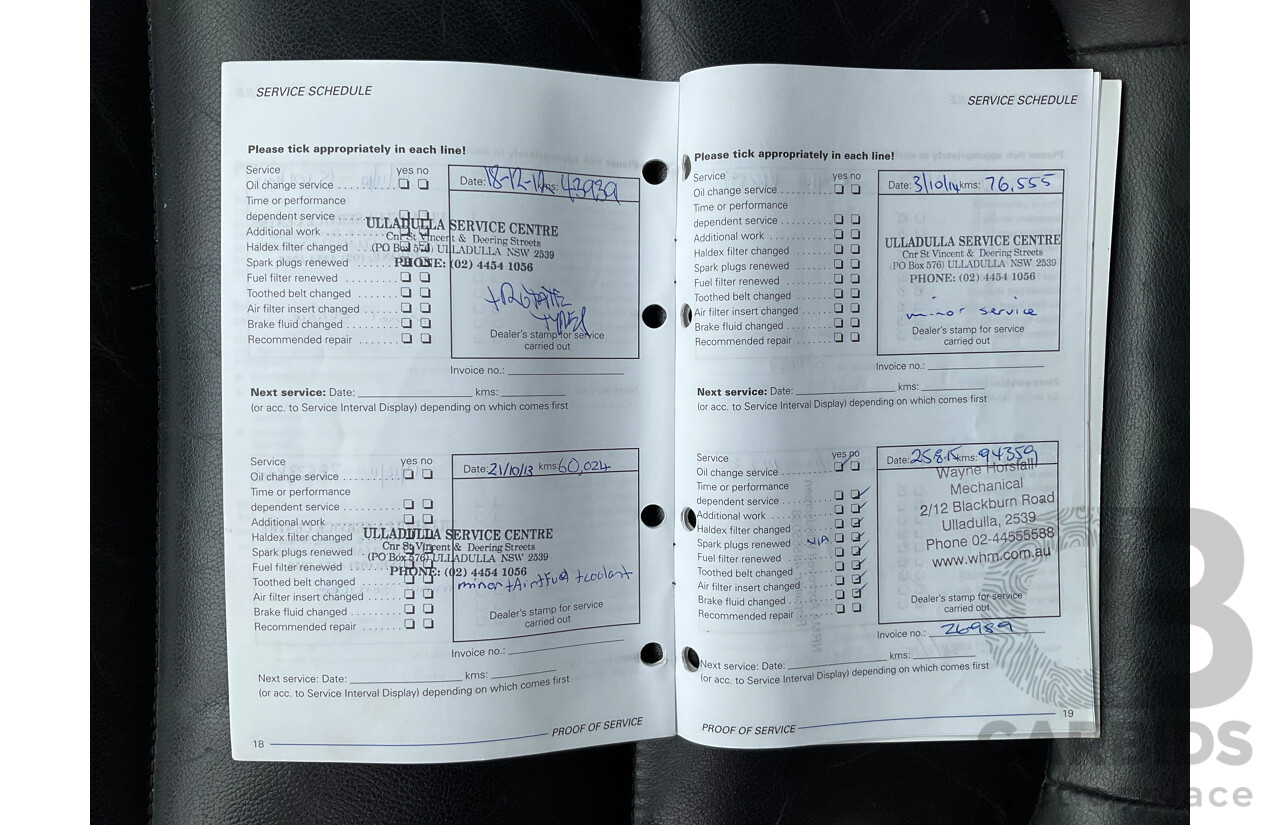 SERVICE SCHEDULE
Please tick appropriately in each line!
Service yes no
Oil change service
Time or performance
dependent service
Additional work
Haldex filter changed
Spark plugs renewed
Fuel filter renewed
Toothed belt changed
Air filter insert changed
Brake fluid changed
Recommended repair
Date: 18-12-12 kms: 43939
ULLADULLA SERVICE CENTRE
Cnr St Vincent & Deering Streets
(PO Box 576) ULLADULLA NSW 2539
PHONE: (02) 4454 1056
+ROTATE
TYRES
Dealer's stamp for service
carried out
Invoice no.:
Next service: Date: kms:
(or acc. to Service Interval Display) depending on which comes first
Service yes no
Oil change service
Time or performance
dependent service
Additional work
Haldex filter changed
Spark plugs renewed
Fuel filter renewed
Toothed belt changed
Air filter insert changed
Brake fluid changed
Recommended repair
Date: 21/10/13 kms: 60,024
ULLADULLA SERVICE CENTRE
Cnr St Vincent & Deering Streets
(PO Box 576) ULLADULLA NSW 2539
PHONE: (02) 4454 1056
minor +Air+Fuel +coolant
Dealer's stamp for service
carried out
Invoice no.:
Next service: Date: kms:
(or acc. to Service Interval Display) depending on which comes first
18 PROOF OF SERVICE
SERVICE SCHEDULE
Please tick appropriately in each line!
Service yes no
Oil change service
Time or performance
dependent service
Additional work
Haldex filter changed
Spark plugs renewed
Fuel filter renewed
Toothed belt changed
Air filter insert changed
Brake fluid changed
Recommended repair
Date: 3/10/14 kms: 76,555
ULLADULLA SERVICE CENTRE
Cnr St Vincent & Deering Streets
(PO Box 576) ULLADULLA NSW 2539
PHONE: (02) 4454 1056
minor service
Dealer's stamp for service
carried out
Invoice no.:
Next service: Date: kms:
(or acc. to Service Interval Display) depending on which comes first
Service yes no
Oil change service
Time or performance
dependent service
Additional work
Haldex filter changed
Spark plugs renewed N/A
Fuel filter renewed
Toothed belt changed
Air filter insert changed
Brake fluid changed
Recommended repair
Date: 25.8.15 kms: 94359
Wayne Horsfall
Mechanical
2/12 Blackburn Road
Ulladulla, 2539
Phone 02-44555588
www.whm.com.au
Dealer's stamp for service
carried out
Invoice no.: 26989
Next service: Date: kms:
(or acc. to Service Interval Display) depending on which comes first
PROOF OF SERVICE 19
CARBIDS